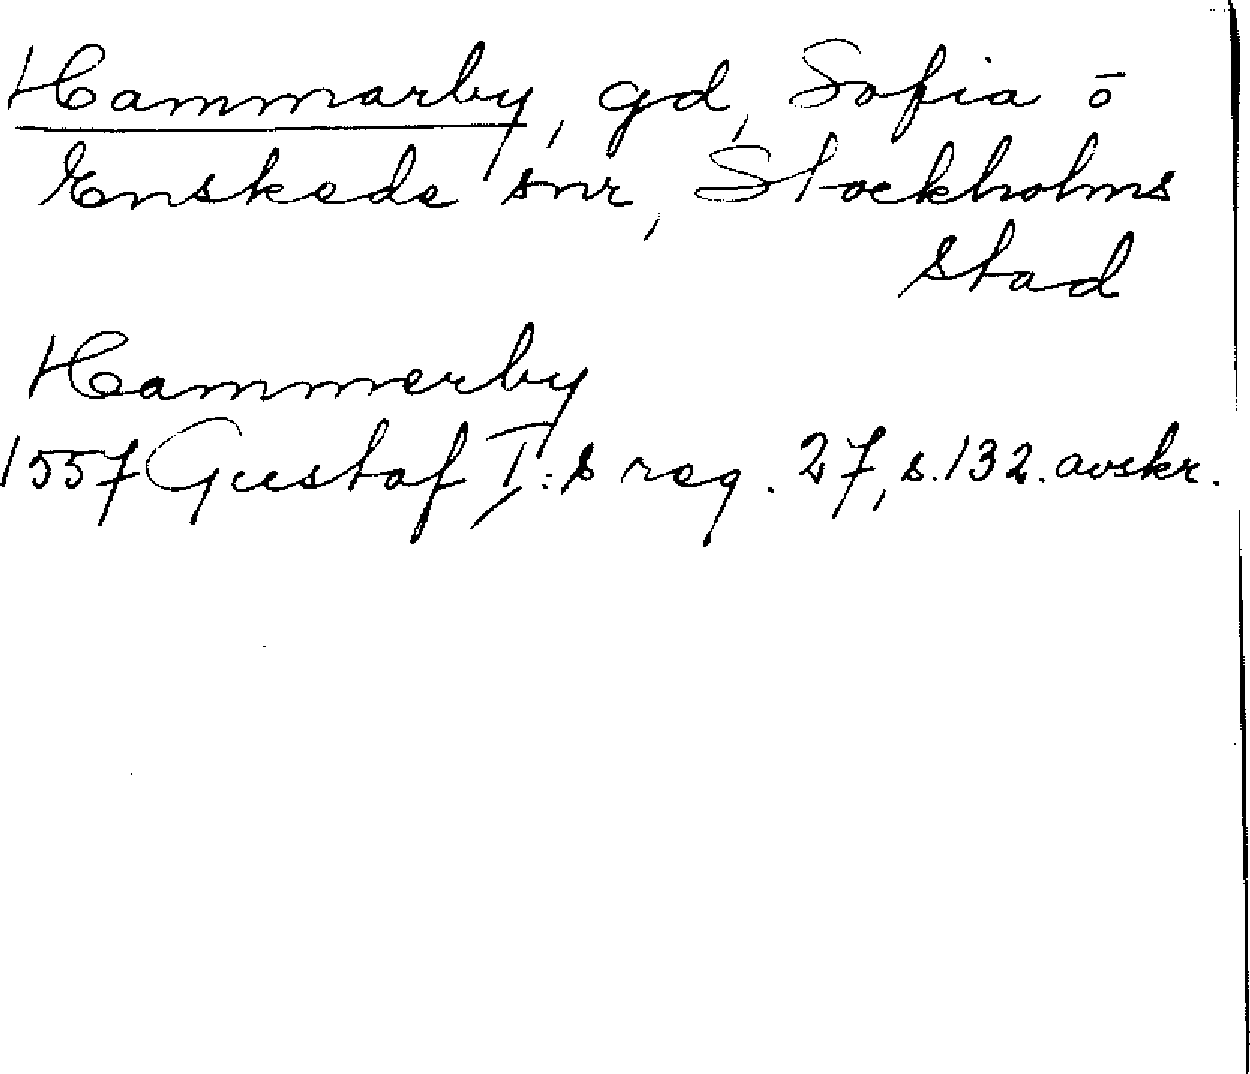 Hammarby, gd, Sofia ō
Enskede snr, Stockholms
stad
Hammerby
1557 Gustaf I:s reg. 27, s. 132. avskr.